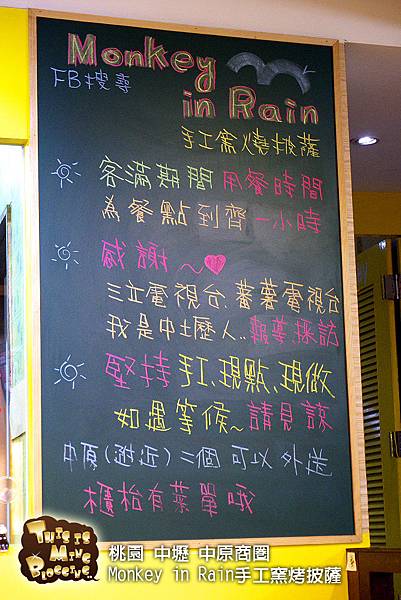 Monkey
FB搜尋
in Rain
手工窯燒披薩
客滿期間用餐時間
為餐點到齊一小時
感謝~
三立電視台、蕃薯電視台
我是中土歷人..報導採訪
堅持手工、現點、現做
如遇等候~請見諒
中原(附近)二個可以外送
櫃枱有菜單哦
THIS IS
MING
BLOGGING
桃園 中壢 中原商圈
Monkey in Rain手工窯烤披薩